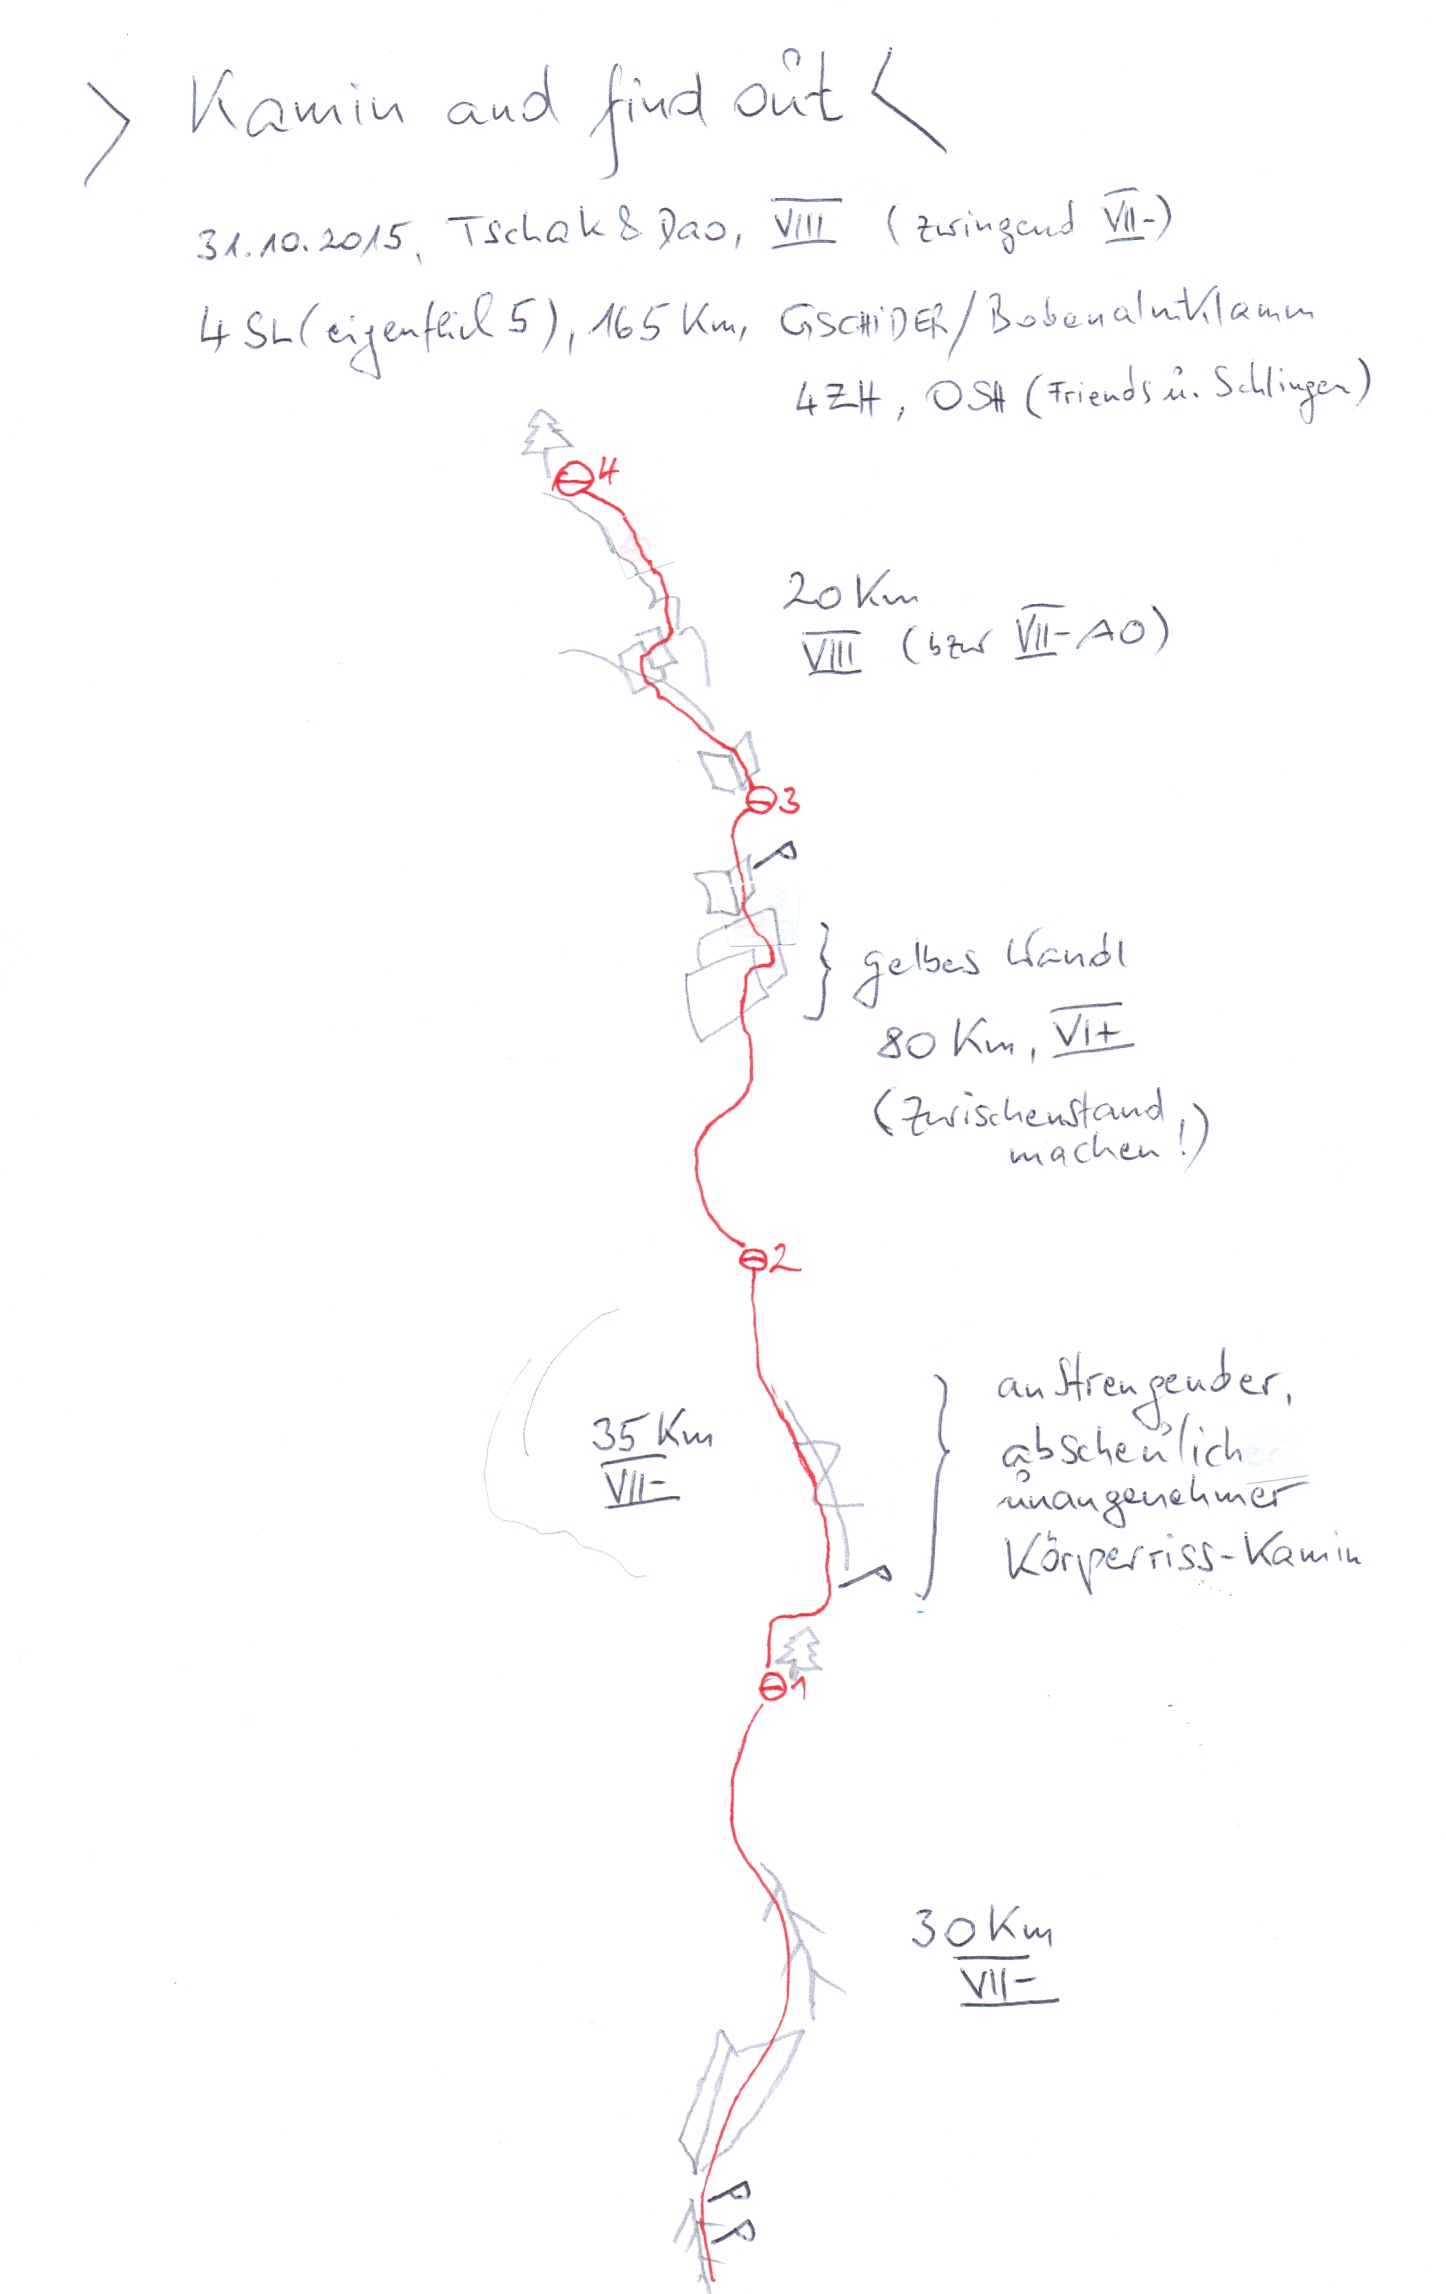 > Kamin and find out <
31.10.2015, Tschak & Dao, VIII (zwingend VII-)
4 SL (eigentlich 5), 165 Km, GSCHIDER/Bobenalmklamm
4 ZH, 0SH (Friends u. Schlingen)
4
20 Km
VIII (bzw VII- A0)
3
gelbes Wandl
80 Km, VI+
(Zwischenstand
machen!)
2
35 Km
VII-
anstrengender,
abscheulich
unangenehmer
Körperriss-Kamin
1
30 Km
VII-